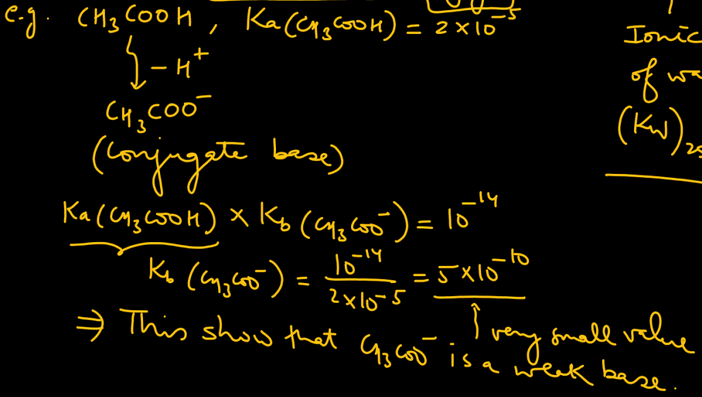 e.g. CH₃COOH, Ka(CH₃COOH) = 2×10⁻⁵
Ionic
of wa
-H⁺
CH₃COO⁻
(Kw)₂₅
(Conjugate base)
Ka(CH₃COOH) × Kb(CH₃COO⁻) = 10⁻¹⁴
Kb(CH₃COO⁻) = 10⁻¹⁴ / 2×10⁻⁵ = 5×10⁻¹⁰
very small value
⇒ This show that CH₃COO⁻ is a weak base.